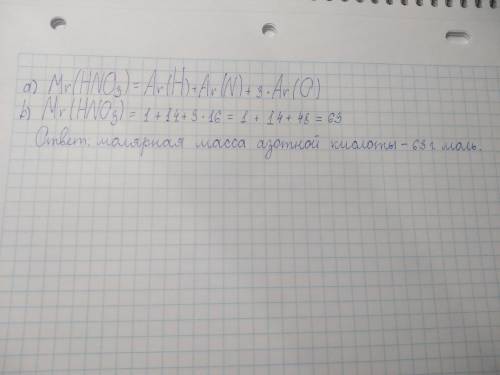 a) Mr(HNO3) = Ar(H)+Ar(N)+3·Ar(O)
b) Mr(HNO3) = 1+14+3·16 = 1+14+48 = 63
Ответ: малярная масса азотной кислоты - 63 г. моль.